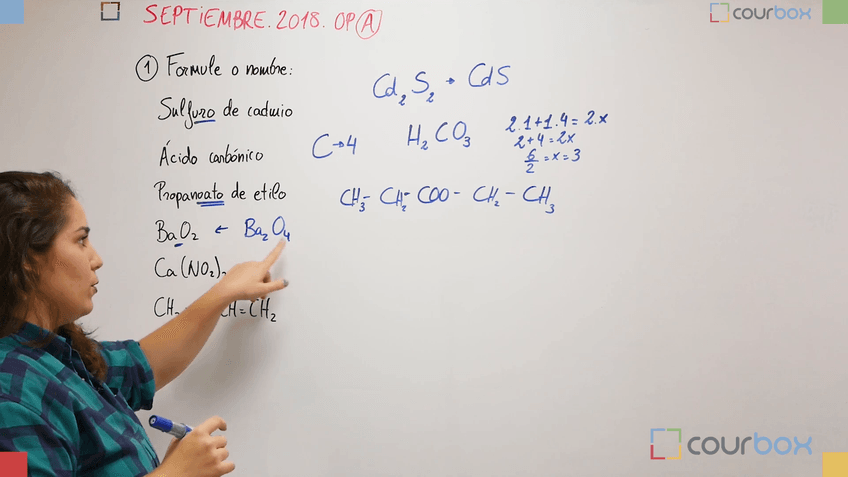 SEPTIEMBRE. 2018. OP A
courbox
1 Formule o nombre:
Sulfuro de cadmio
Cd₂S₂ → CdS
Ácido carbónico
C→4
H₂CO₃
2.1+1.4=2.x
2+4=2x
6/2=x=3
Propanoato de etilo
CH₃- CH₂- COO- CH₂- CH₃
BaO₂ ← Ba₂O₄
Ca(NO₂)₂
CH₂
CH=CH₂
courbox